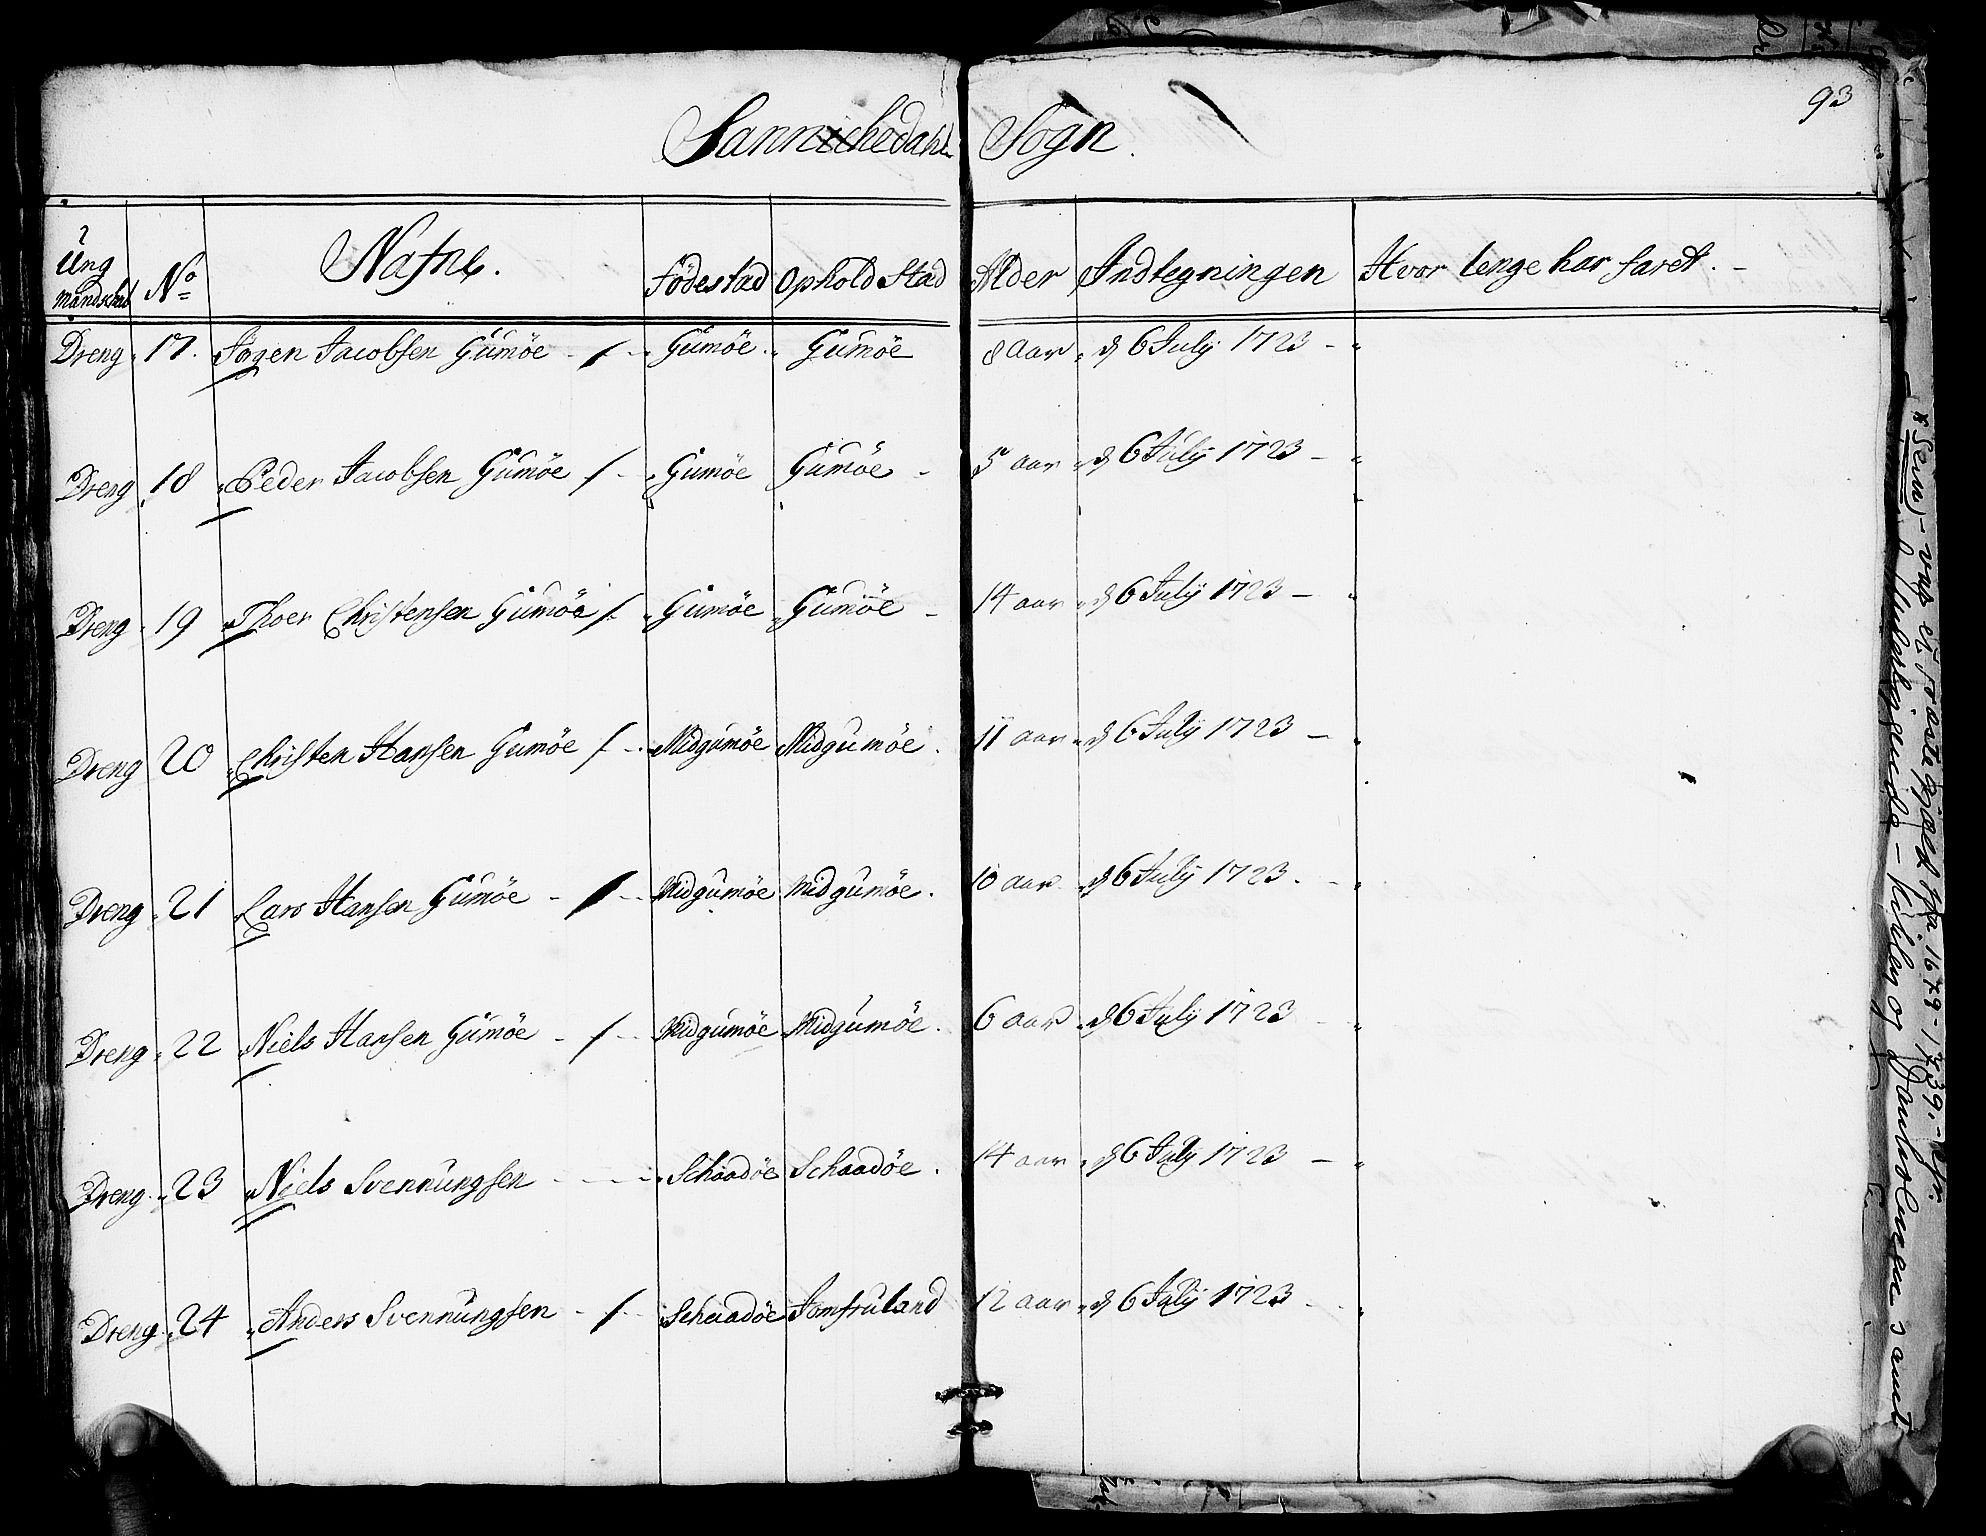 93
Sannichedahls Sogn.
Ung
mandskab No Nafne. Födestad Ophold Stad Alder Indtegningen Hvor lenge har faret.
Dreng 17. Jögen Jacobsen Gumöe Gumöe Gumöe 8 aar d 6 July 1723
Dreng 18 Peder Jacobsen Gumöe Gumöe Gumöe 5 aar d 6 July 1723
Dreng 19 Thoer Christensen Gumöe Gumöe Gumöe 14 aar d 6 July 1723
Dreng 20 Christen Hansen Gumöe Midgumöe Midgumöe 11 aar d 6 July 1723
Dreng 21 Lars Hansen Gumöe Midgumöe Midgumöe 10 aar d 6 July 1723
Dreng 22 Niels Hansen Gumöe Midgumöe Midgumöe 6 aar d 6 July 1723
Dreng 23 Niels Svennungsen Schaadöe Schaadöe 14 aar d 6 July 1723
Dreng 24 Anders Svennungsen Schaadöe Jomfruland 12 aar d 6 July 1723
- kirker og samt
*Sem - var ej fra 1679-1739.